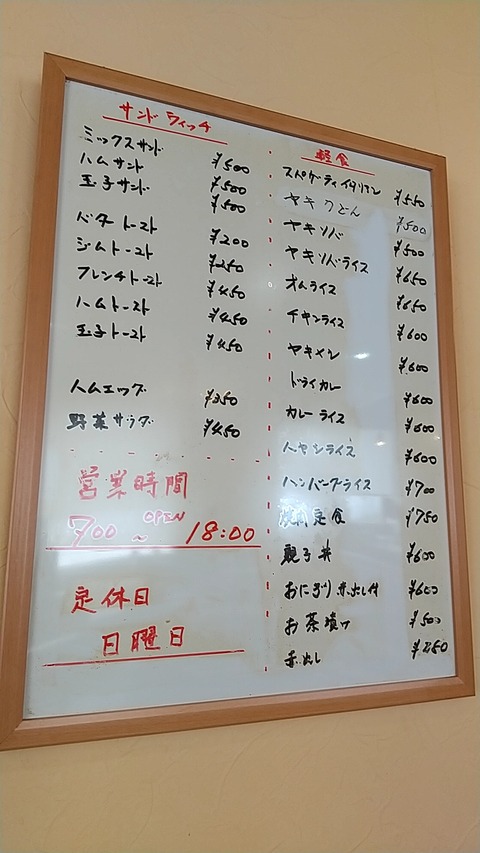 サンドウィッチ
ミックスサンド ¥500
ハムサンド ¥500
玉子サンド ¥500
バタートースト ¥200
ジャムトースト ¥250
フレンチトースト ¥450
ハムトースト ¥450
玉子トースト ¥450
ハムエッグ ¥350
野菜サラダ ¥450
営業時間
OPEN
7:00 ~ 18:00
定休日
日曜日
軽食
スパゲティイタリアン ¥550
ヤキウどん ¥500
ヤキソバ ¥500
ヤキソバライス ¥650
オムライス ¥650
チキンライス ¥600
ヤキメシ ¥600
ドライカレー ¥600
カレーライス ¥600
ハヤシライス ¥600
ハンバーグライス ¥700
定食 ¥750
親子丼 ¥600
おにぎり 赤出し付 ¥600
お茶漬け ¥500
赤出し ¥250